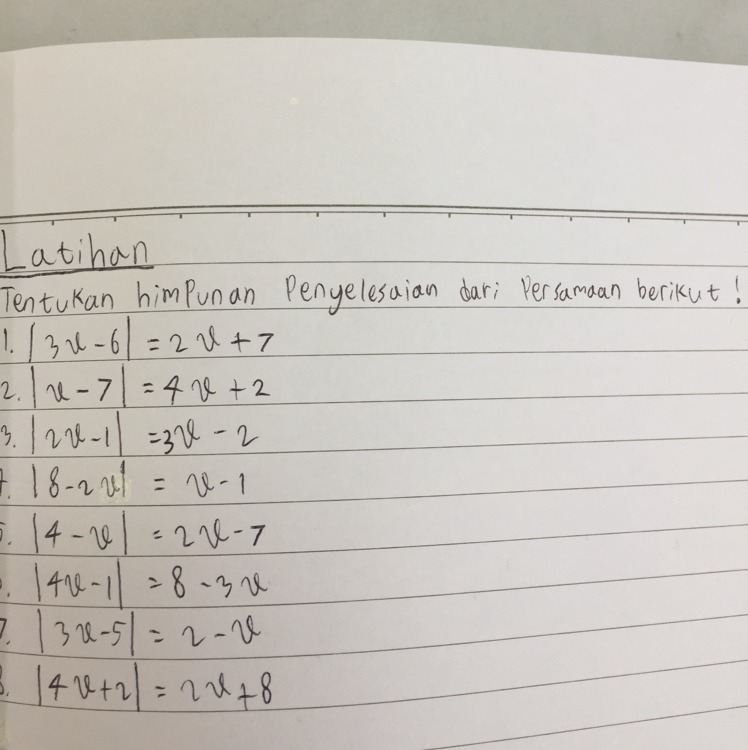 Latihan
Tentukan himpunan Penyelesaian dari Persamaan berikut !
1. |3x-6| = 2x + 7
2. |x-7| = 4x + 2
3. |2x-1| = 3x - 2
|8-2x| = x-1
|4-x| = 2x-7
|4x-1| = 8-3x
7. |3x-5| = 2-x
8. |4x+2| = 2x+8